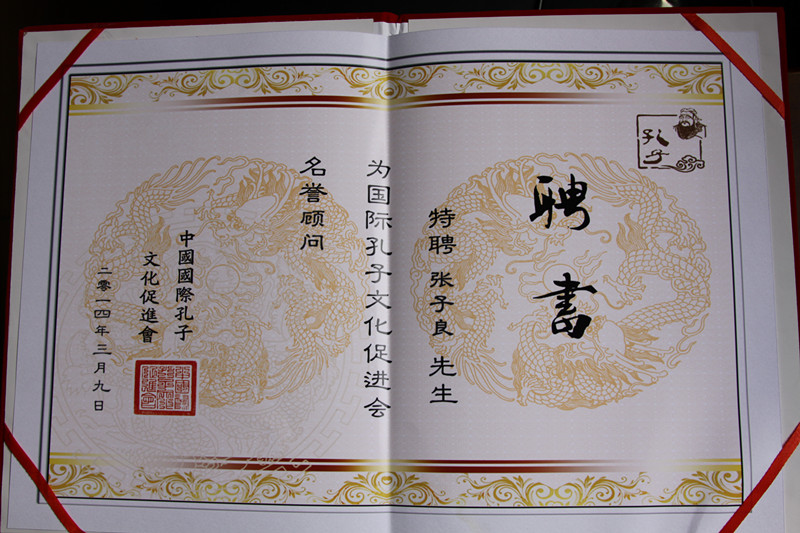 孔子
聘書
特聘 张子良 先生
为国际孔子文化促进会
名誉顾问
中國國際孔子
文化促進會
二零一四年三月九日